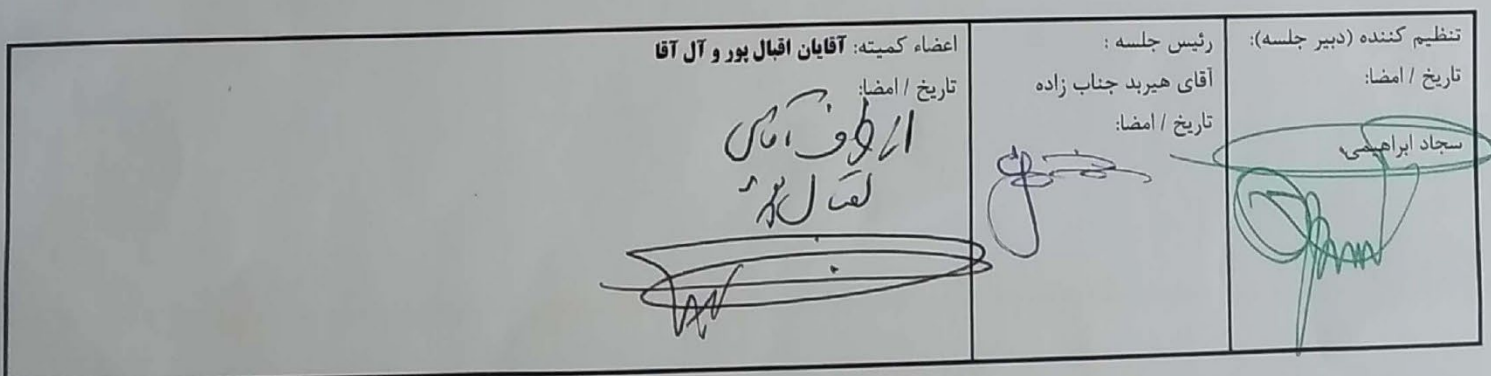 تنظیم کننده (دبیر جلسه):
تاریخ / امضا:
سجاد ابراهیمی
رئیس جلسه :
آقای هیربد جناب زاده
تاریخ / امضا:
اعضاء کمیته: آقایان اقبال پور و آل آقا
تاریخ / امضا:
از طرف آقای
اقبال پور